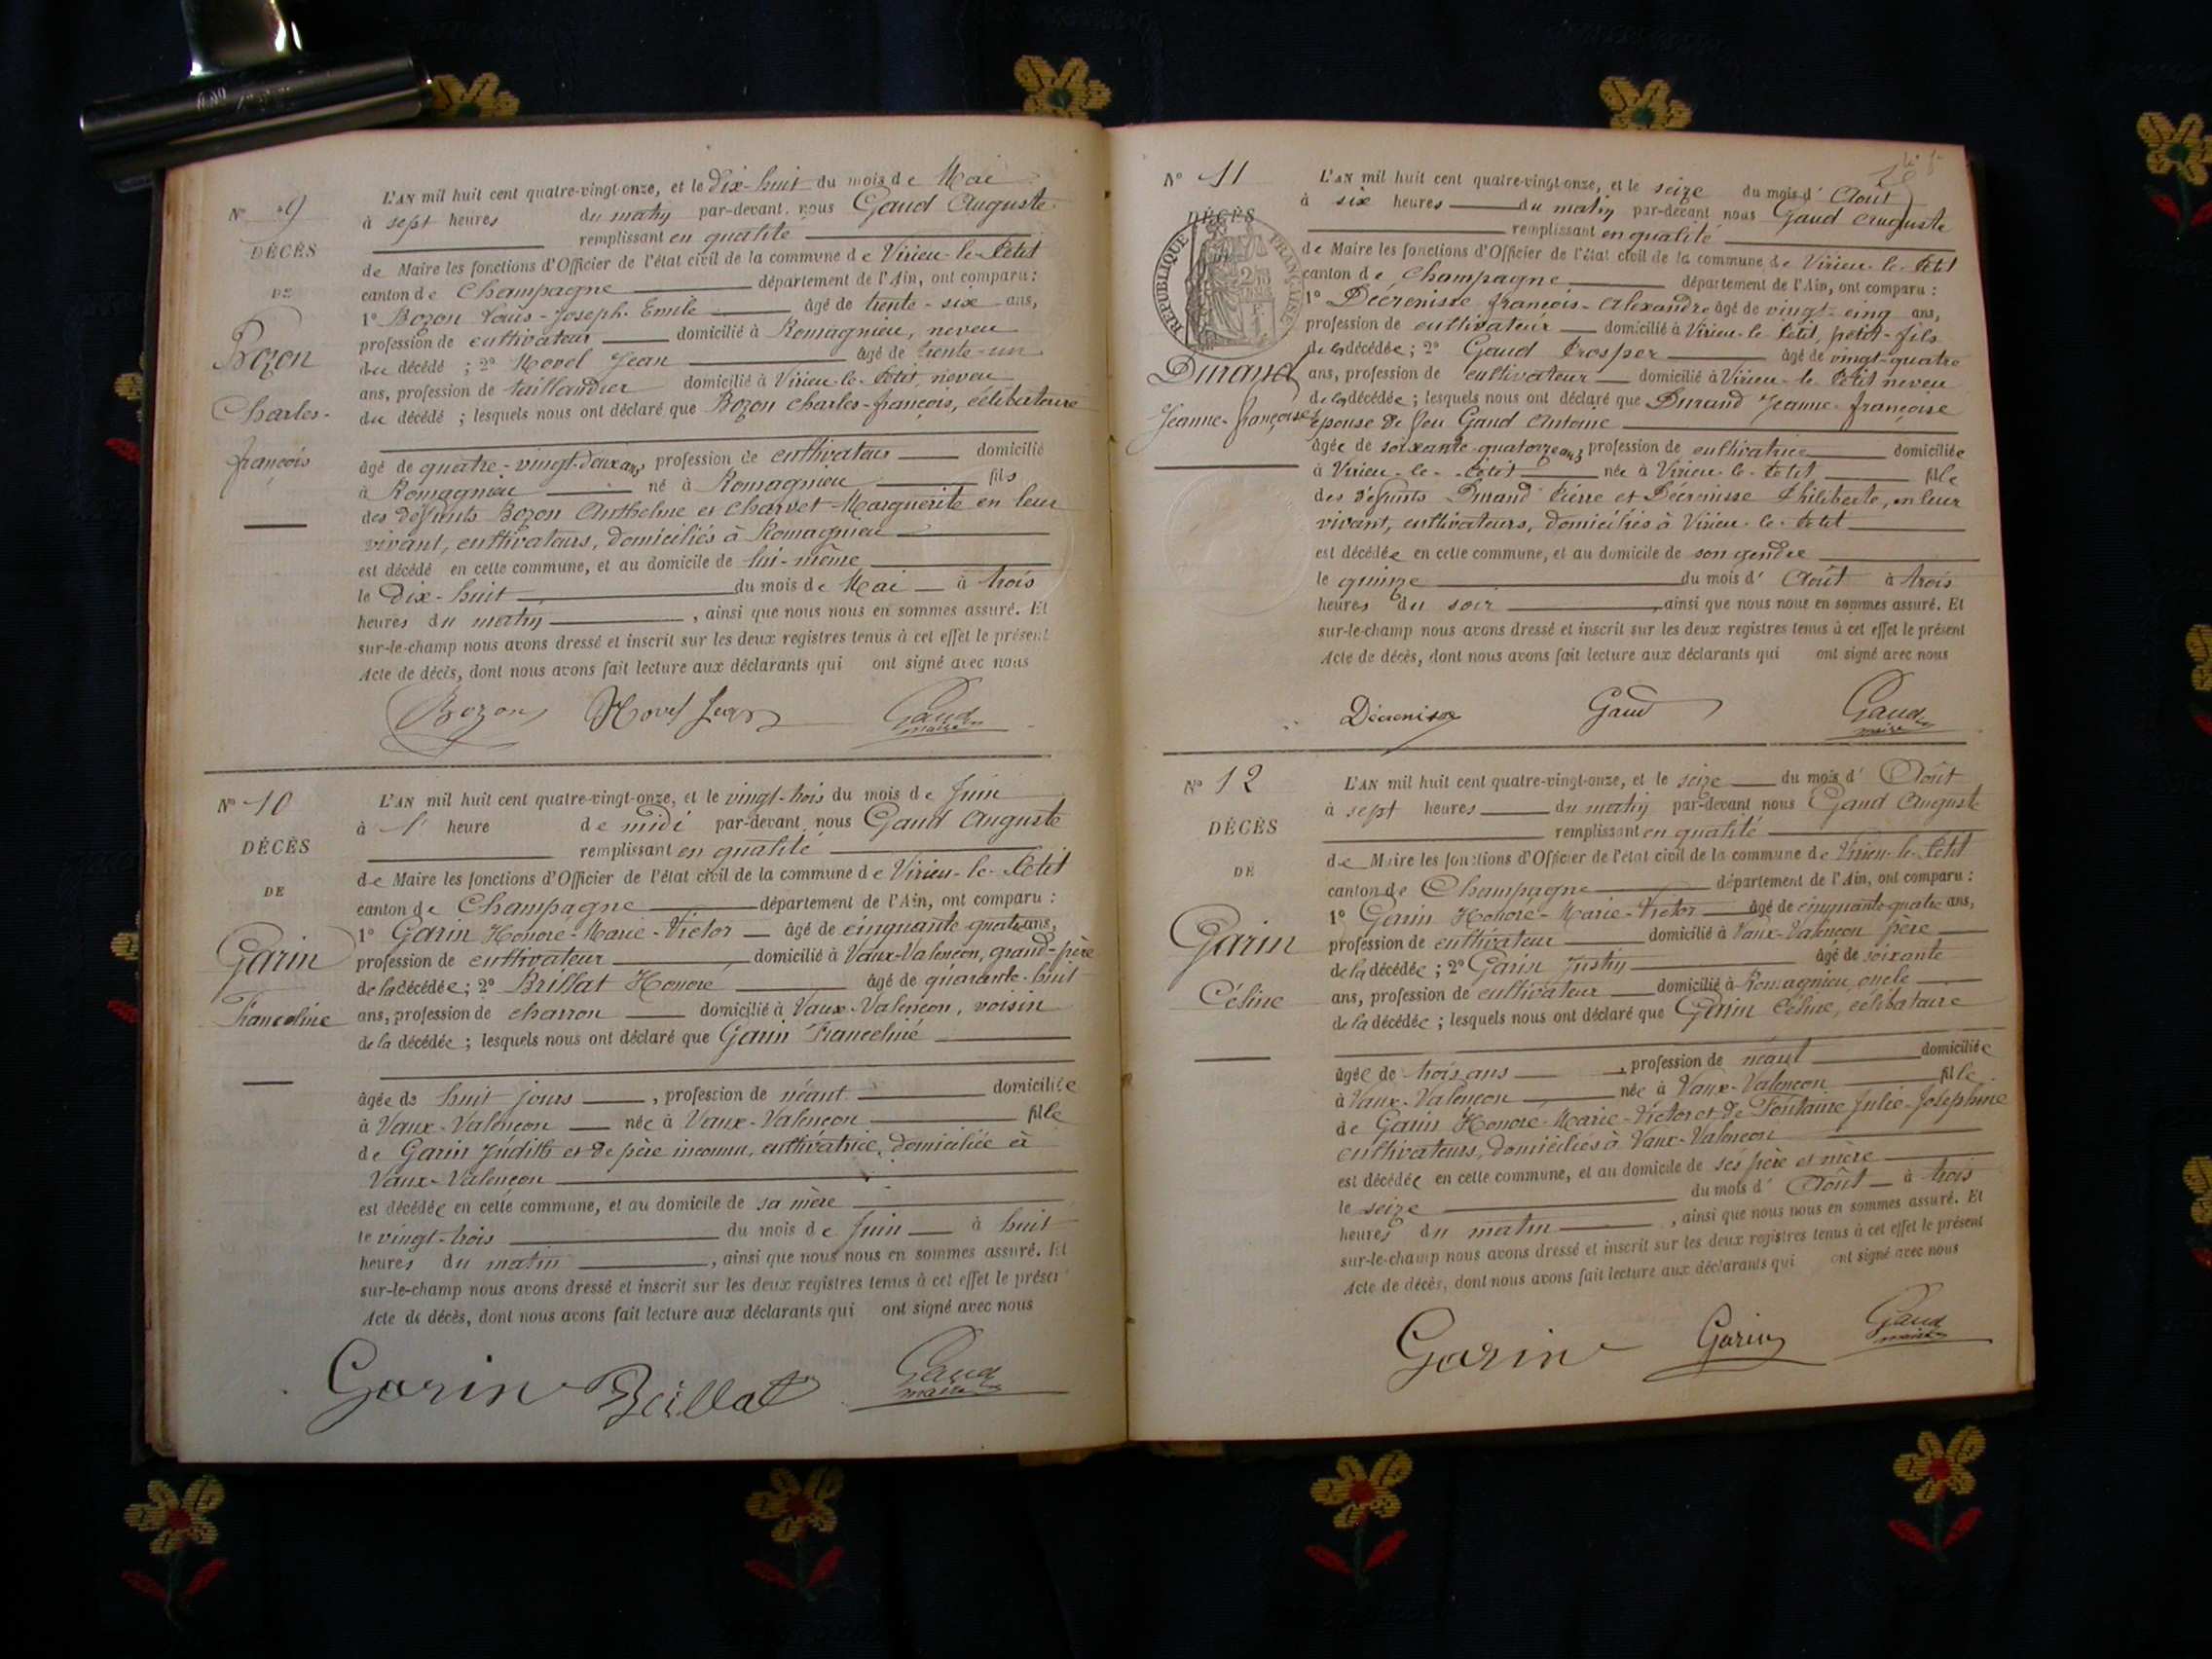 N° 9
DÉCÈS
DE
Bozon
Charles-
françois
L'AN mil huit cent quatre-vingt-onze, et le Dix-huit du mois de Mai
à sept heures du matin par-devant nous Gaud Auguste
remplissant en qualité
de Maire les fonctions d'Officier de l'état civil de la commune de Virieu-le-Petit
canton de Champagne département de l'Ain, ont comparu :
1° Bozon Louis-Joseph-Emile âgé de trente-six ans,
profession de cultivateur domicilié à Romagnieu, neveu
du décédé ; 2° Hovel Jean âgé de trente-un
ans, profession de taillandier domicilié à Virieu-le-Petit, neveu
du décédé ; lesquels nous ont déclaré que Bozon Charles-françois, célibataire
âgé de quatre-vingt-deux ans, profession de cultivateur domicilié
à Romagnieu né à Romagnieu fils
des défunts Bozon Anthelme et Charvet Marguerite en leur
vivant, cultivateurs, domiciliés à Romagnieu
est décédé en cette commune, et au domicile de lui-même
le Dix-huit du mois de Mai à trois
heures du matin, ainsi que nous nous en sommes assuré. Et
sur-le-champ nous avons dressé et inscrit sur les deux registres tenus à cet effet le présent
Acte de décès, dont nous avons fait lecture aux déclarants qui ont signé avec nous
Bozon Hovel Jean Gaud
maire
N° 10
DÉCÈS
DE
Garin
Franceline
L'AN mil huit cent quatre-vingt-onze, et le vingt-trois du mois de Juin
à 1 heure de midi par-devant nous Gaud Auguste
remplissant en qualité
de Maire les fonctions d'Officier de l'état civil de la commune de Virieu-le-Petit
canton de Champagne département de l'Ain, ont comparu :
1° Garin Honoré-Marie-Victor âgé de cinquante-quatre ans,
profession de cultivateur domicilié à Vaux-Valençon, grand-père
de la décédée ; 2° Brillat Honoré âgé de quarante-huit
ans, profession de charron domicilié à Vaux-Valençon, voisin
de la décédée ; lesquels nous ont déclaré que Garin Franceline
âgée de huit jours, profession de néant domiciliée
à Vaux-Valençon née à Vaux-Valençon fille
de Garin Judith et de père inconnu, cultivatrice, domiciliée à
Vaux-Valençon
est décédée en cette commune, et au domicile de sa mère
le vingt-trois du mois de Juin à huit
heures du matin, ainsi que nous nous en sommes assuré. Et
sur-le-champ nous avons dressé et inscrit sur les deux registres tenus à cet effet le présent
Acte de décès, dont nous avons fait lecture aux déclarants qui ont signé avec nous
Garin Brillat Gaud
maire
N° 11
DÉCÈS
RÉPUBLIQUE FRANÇAISE
Durand
Jeanne-françoise
L'AN mil huit cent quatre-vingt-onze, et le seize du mois d'Août
à six heures du matin par-devant nous Gaud Auguste
remplissant en qualité
de Maire les fonctions d'Officier de l'état civil de la commune de Virieu-le-Petit
canton de Champagne département de l'Ain, ont comparu :
1° Décrenisse françois-Alexandre âgé de vingt-cinq ans,
profession de cultivateur domicilié à Virieu-le-Petit, petit-fils
de la décédée ; 2° Gaud Prosper âgé de vingt-quatre
ans, profession de cultivateur domicilié à Virieu-le-Petit neveu
de la décédée ; lesquels nous ont déclaré que Durand Jeanne-françoise
épouse de feu Gaud Antoine
âgée de soixante-quatorze ans, profession de cultivatrice domiciliée
à Virieu-le-Petit née à Virieu-le-Petit fille
des défunts Durand Pierre et Décrenisse Philiberte, en leur
vivant, cultivateurs, domiciliés à Virieu-le-Petit
est décédée en cette commune, et au domicile de son gendre
le quinze du mois d'Août à trois
heures du soir, ainsi que nous nous en sommes assuré. Et
sur-le-champ nous avons dressé et inscrit sur les deux registres tenus à cet effet le présent
Acte de décès, dont nous avons fait lecture aux déclarants qui ont signé avec nous
Décrenisse Gaud Gaud
maire
N° 12
DÉCÈS
DE
Garin
Céline
L'AN mil huit cent quatre-vingt-onze, et le seize du mois d'Août
à sept heures du matin par-devant nous Gaud Auguste
remplissant en qualité
de Maire les fonctions d'Officier de l'état civil de la commune de Virieu-le-Petit
canton de Champagne département de l'Ain, ont comparu :
1° Garin Honoré-Marie-Victor âgé de cinquante-quatre ans,
profession de cultivateur domicilié à Vaux-Valençon père
de la décédée ; 2° Garin Justin âgé de soixante
ans, profession de cultivateur domicilié à Romagnieu, oncle
de la décédée ; lesquels nous ont déclaré que Garin Céline, célibataire
âgée de trois ans, profession de néant domiciliée
à Vaux-Valençon née à Vaux-Valençon fille
de Garin Honoré-Marie-Victor et de Fontaine Julie-Joséphine
cultivateurs, domiciliés à Vaux-Valençon
est décédée en cette commune, et au domicile de ses père et mère
le seize du mois d'Août à trois
heures du matin, ainsi que nous nous en sommes assuré. Et
sur-le-champ nous avons dressé et inscrit sur les deux registres tenus à cet effet le présent
Acte de décès, dont nous avons fait lecture aux déclarants qui ont signé avec nous
Garin Garin Gaud
maire